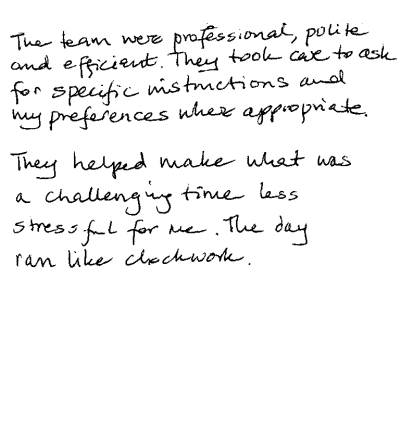 The team were professional, polite
and efficient. They took care to ask
for specific instructions and
my preferences where appropriate.
They helped make what was
a challenging time less
stressful for me. The day
ran like clockwork.